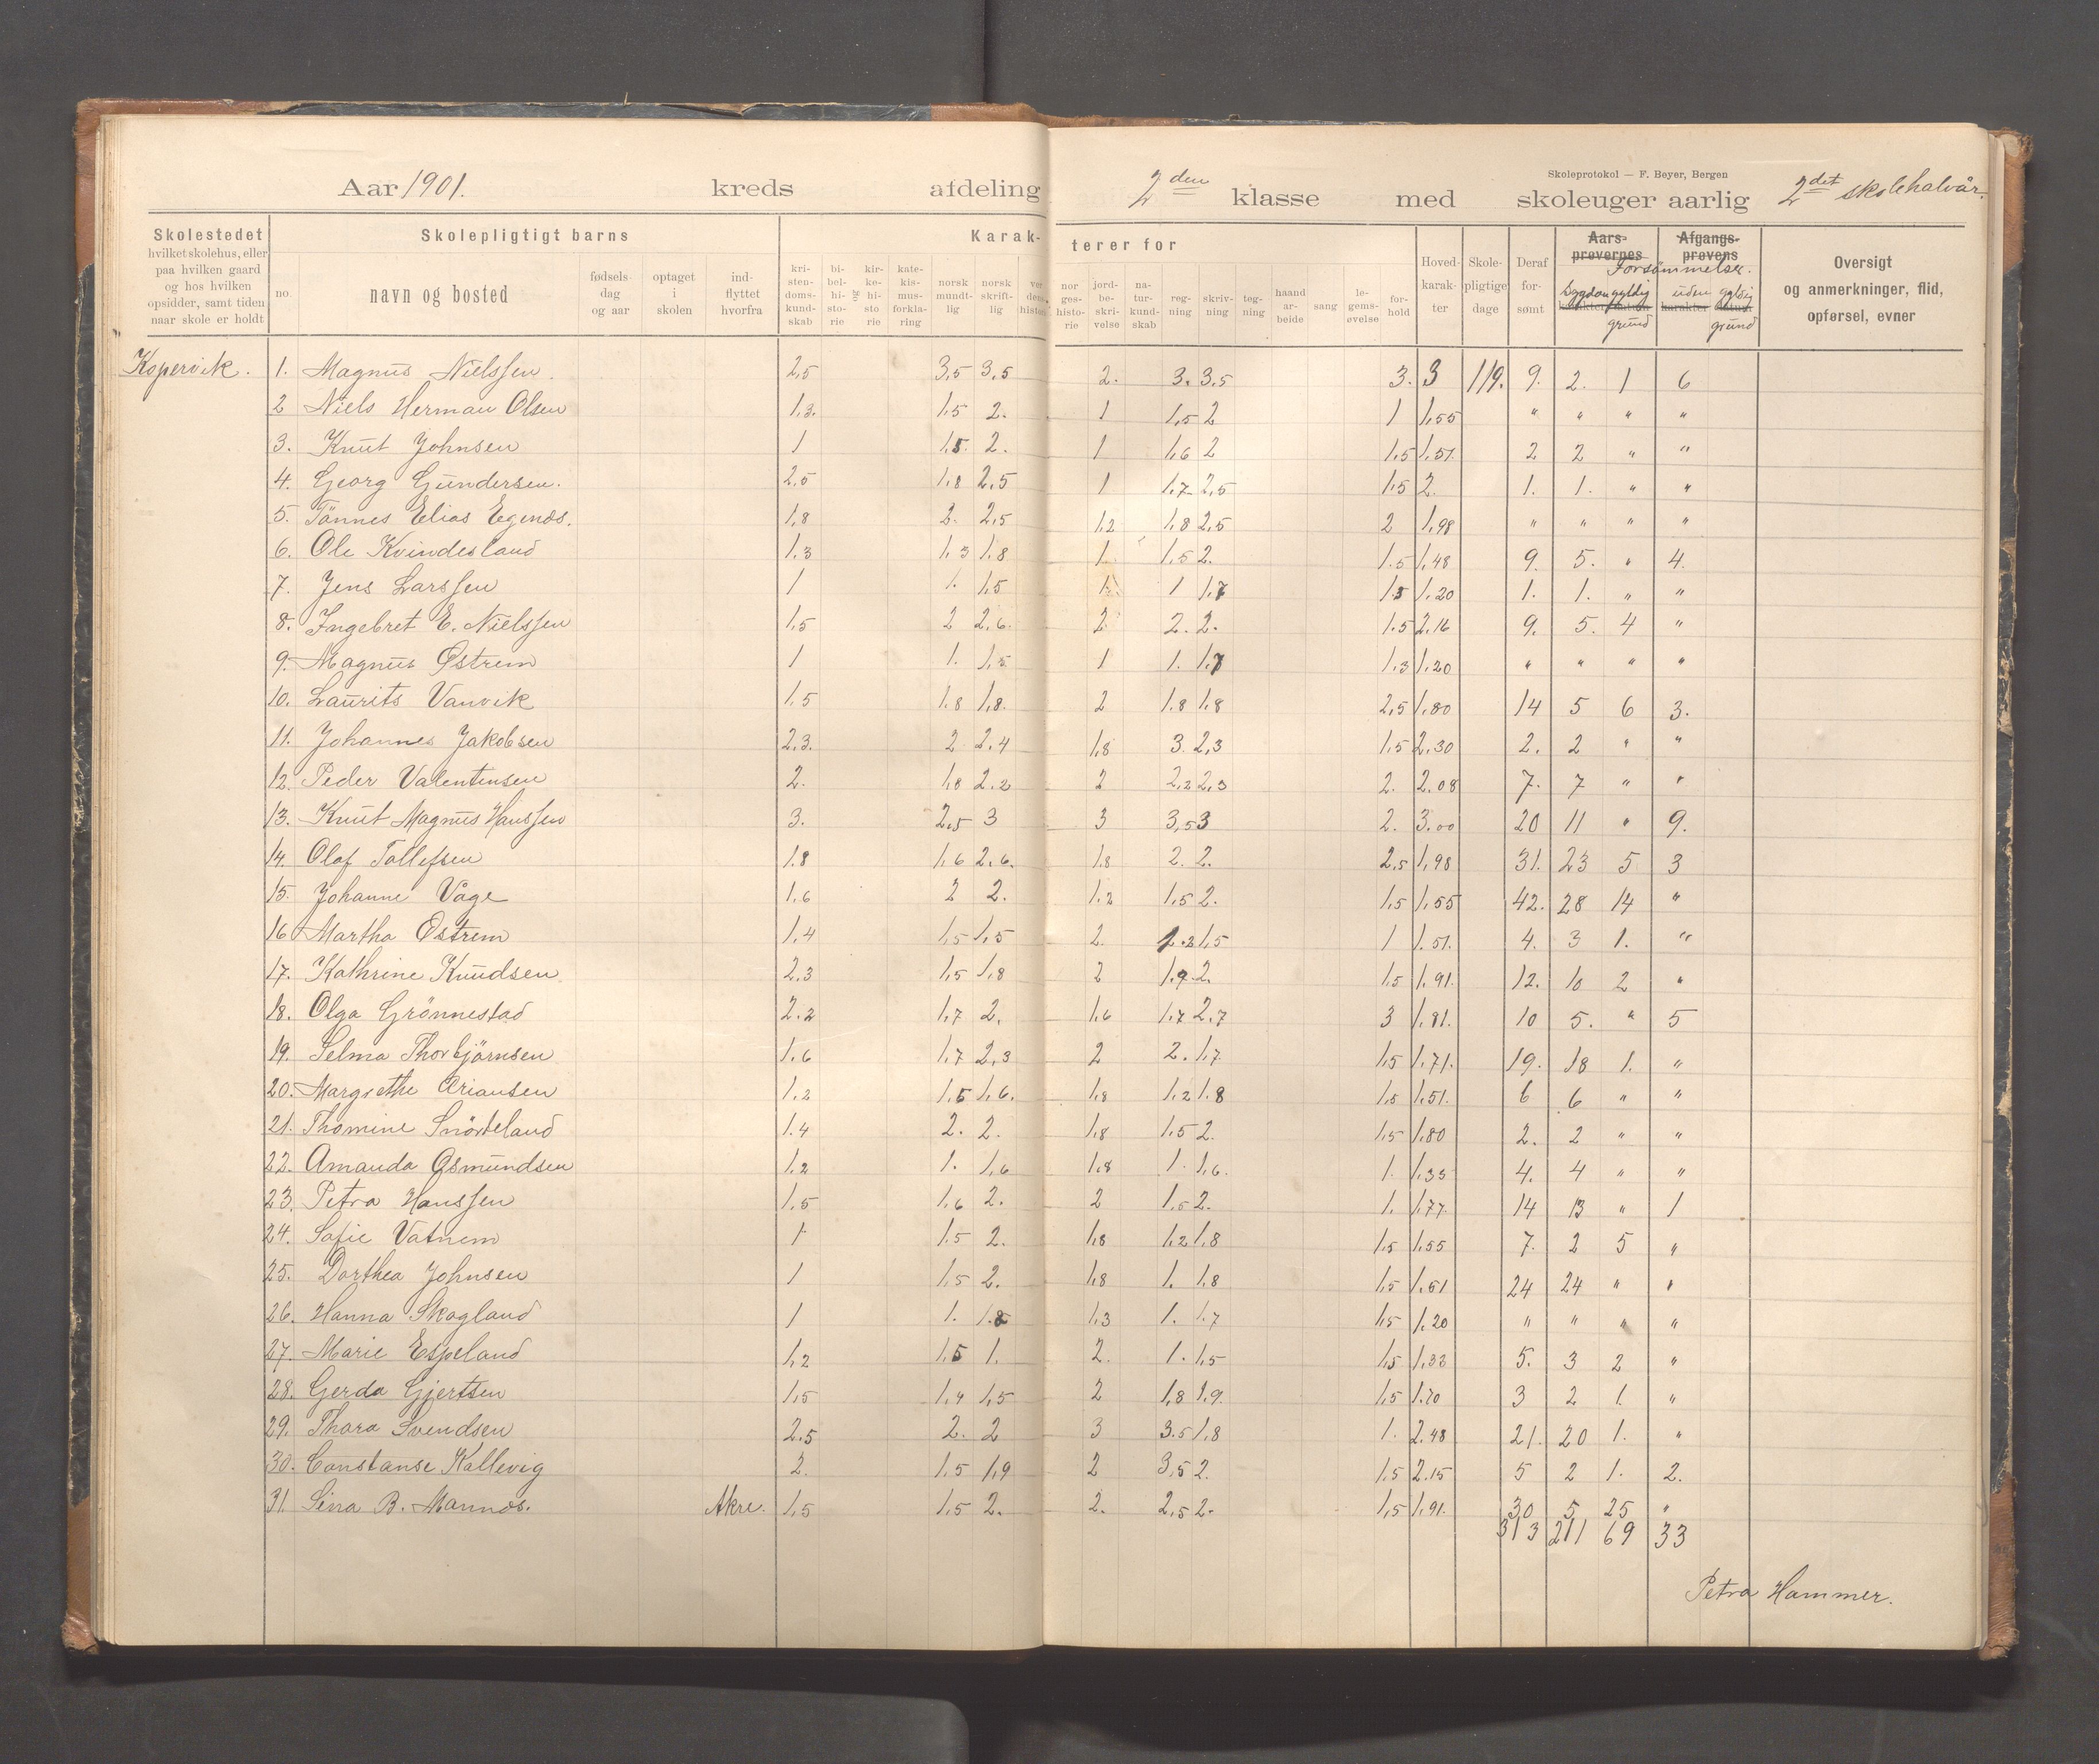 Skoleprotokol — F. Beyer, Bergen
Aar 1901. kreds afdeling 2den klasse med skoleuger aarlig 2det skolehalvår.
Skolestedet
hvilket skolehus, eller
paa hvilken gaard
og hos hvilken
opsidder, samt tiden
naar skole er holdt
Skolepligtigt barns
no.
navn og bosted
fødsels-
dag
og aar
optaget
i
skolen
ind-
flyttet
hvorfra
Karak-
terer for
kri-
sten-
doms-
kund-
skab
bi-
bel-
hi-
sto-
rie
og
kir-
ke-
hi-
sto
rie
kate-
kis-
mus-
forkla-
ring
norsk
mundt-
lig
norsk
skrift-
lig
ver
dens-
histori
nor
ges-
histo-
rie
jord-
be-
skri-
velse
na-
tur-
kund-
skab
reg-
ning
skriv-
ning
teg-
ning
haand
ar-
beide
sang
le-
gems-
øvelse
for-
hold
Hoved-
karak-
ter
Skole-
pligtige
dage
Deraf
for-
sømt
Aars-
prøvernes
karakter datum
Afgangs-
prøvens
karakter datum
Forsømmelser.
Sygdom gyldig grund
uden gyldig grund
Oversigt
og anmerkninger, flid,
opførsel, evner
Kopervik. 1. Magnus Nielssen. 2,5 3,5 3,5 2. 3. 3,5 3. 3 119. 9. 2. 1 6
2 Niels Herman Olsen 1,3. 1,5 2. 1 1,5 2 1 1,55 " " " "
3. Knut Johnsen 1 1,5. 2. 1 1,6 2 1,5 1,51. 2 2 " "
4. Georg Gundersen. 2,5 1,8 2,5 1 1,7 2,5 1,5 2. 1. 1. " "
5. Tönnes Elias Egends. 1,8 2. 2,5 1,2 1,8 2,5 2 1,98 " " " "
6. Ole Kvindesland 1,3 1,3 1,8 1. 1,5 2. 1.5 1,48 9. 5. " 4.
7. Jens Larssen 1 1. 1,5 1. 1 1,7 1,5 1.20 1. 1. " "
8. Ingebret E. Nielssen 1,5 2 2,6. 2 2. 2. 1.5 2.16 9. 5. 4 "
9. Magnus Östrem 1 1. 1,5 1 1. 1,7 1,3 1.20 " " " "
10. Laurits Vanvik 1.5 1.8 1,8. 2 1.8 1.8 2,5 1,80 14 5 6 3.
11. Johannes Jakobsen 2,3. 2 2,4 1,8 3. 2,3 1,5 2.30 2. 2 " "
12. Peder Valentinsen 2. 1,8 2.2 2 2,2 2,3 2. 2.08 7. 7 " "
13. Knut Magnus Hanssen 3. 2,5 3 3 3,5 3 2. 3.00 20 11 " 9.
14. Olaf Tollefsen 1.8 1,6 2,6. 1,8 2. 2. 2,5 1,98 31. 23 5 3
15. Johanne Våge 1,6 2 2. 1.2 1,5 2. 1,5 1,55 42. 28 14 "
16 Martha Östrem 1,4 1,5 1,5 2. 2.2 1,5 1 1.51. 4. 3 1. "
17. Kathrine Knudsen. 2,3 1,5 1,8 2 1.9 2. 1,5 1.91. 12. 10 2 "
18. Olga Grönnestad 2.2 1,7 2. 1,6 1,7 2.7 3 1,81. 10 5. " 5
19. Selma Thorbjörnsen 1,6 1,7 2,3 2 2. 1,7 1,5 1,71. 19. 18 1. "
20. Margrethe Ariansen 1,2 1,5 1,6. 1,8 1,2 1.8 1,5 1,51. 6 6 " "
21. Thomine Snörteland 1.4 2. 2. 1,8 1,5 2. 1,5 1,80 2. 2 " "
22. Amanda Osmundsen 1,2 1. 1,6 1,8 1. 1,6. 1. 1,35 4. 4 " "
23. Petra Hanssen 1.5 1,6 2. 2 1,5 2. 1. 1,77. 14 13 " 1
24. Sofie Vatnem 1 1.5 2. 1,8 1,2 1,8 1,5 1,55 7. 2 5 "
25. Dorthea Johnsen 1 1,5 2. 1,8 1. 1,8 1,5 1.51 24 24 " "
26. Hanna Skogland 1 1. 1.8 1,3 1. 1.7 1,5 1.20 " " " "
27. Marie Espeland 1,2 1.5 1. 2. 1. 1,5 1,5 1,33 5. 3 2 "
28. Gerda Gjertsen 1,5 1,4 1,5 2 1,8 1,9. 1,5 1.70 3 2 1. "
29. Thora Svendsen 2.5 2. 2 3 3.5 1,8 1. 2.48 21. 20 1. "
30. Constanse Kallevig 2. 1,5 1,9 2 3,5 2. 1,5 2.15 5 2 1. 2.
31. Sina B. Mannes. Akre. 1,5 1,5 2. 2. 2,5 2. 1,5 1,91. 30 5 25 "
313 211 69 33
Petra Hammer.